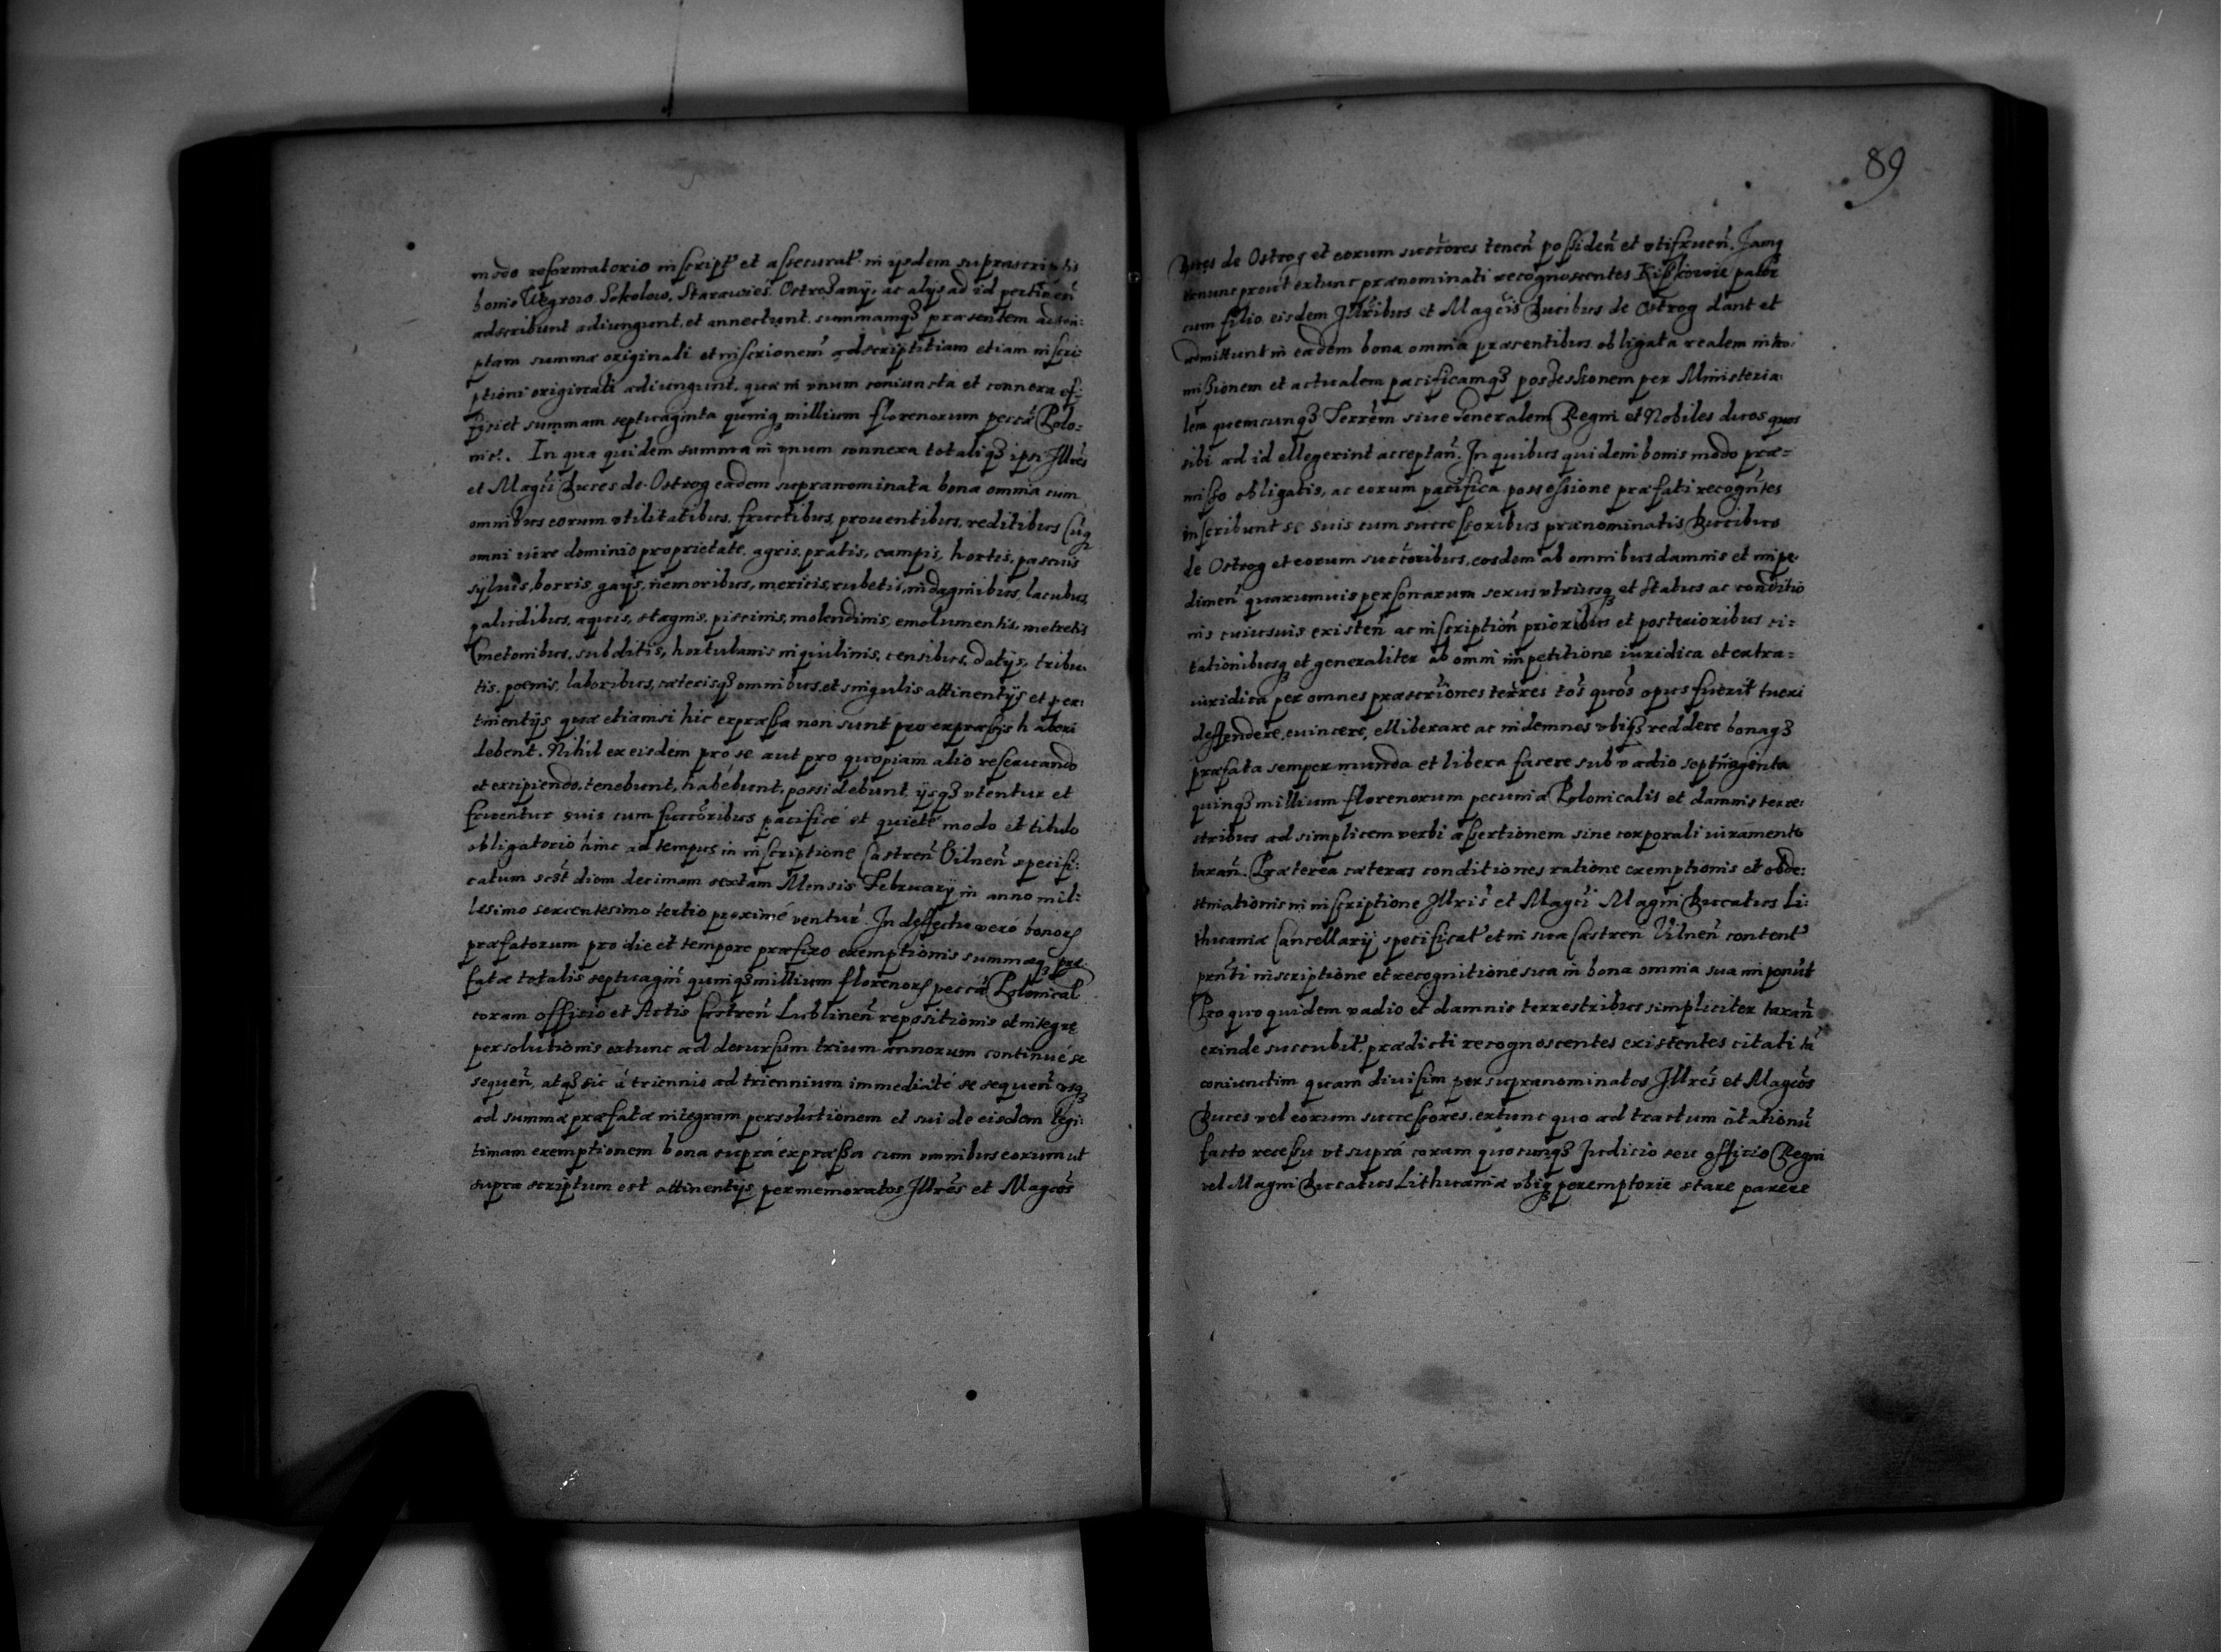 modo reformatorio inscript. et assecurat. in ijsdem suprascriptis
bonis Wegrow, Sokolow, Starawies, Ostrożany, ac alijs ad id pertinen̄
adscribunt adiungunt, et annectunt, summamqꝫ præsentem adscri:
ptam summæ originali et inscrionem adscriptitiam etiam inscri:
ptioni originali adiungunt, quæ in vnum coniuncta et connexa ef:
ficiet summam septuaginta quinqꝫ millium florenorum peccæ Polo:
nicl. In qua quidem summa in vnum connexa totaliqꝫ ipsi Illres
et Magci Duces de Ostrog eadem supranominata bona omnia cum
omnibus eorum vtilitatibus, fructibus, prouentibus, reditibus cuqꝫ
omni iure dominio proprietate, agris, pratis, campis, hortis, pascuis
syluis, borris, gays, nemoribus, mericis, rubetis, indaginibus, lacubus,
paludibus, aquis, stagnis, piscinis, molendinis, emolumentis, metretis
Cmetonibus, subditis, hortulanis inquilinis, censibus, datijs, tribu:
tis, poenis, laboribus, cæterisqꝫ omnibus, et singulis attinentijs et per:
tinentijs quæ etiamsi hic expræssa non sunt pro expræssis haberi
debent. Nihil ex eisdem pro se aut pro quopiam alio reseruando
et excipiendo, tenebunt, habebunt, possidebunt ijsqꝫ vtentur et
fruentur suis cum succoribus pacificé et quieté modo et titulo
obligatorio hinc ad tempus in inscriptione Castren̄ Vilnen̄ specifi:
catum scłt diem decimam sextam Mensis February in anno mil:
lesimo sexcentesimo tertio proximé ventur. In deffectu veró bonorꝫ
præfatorum pro die et tempore præfixo exemptionis summæqꝫ præ:
fatæ totalis septuagin quinqꝫ millium florenorꝫ peccæ Polonical
coram officio et Actis Castren̄ Lublinen̄ repositionis et integræ
persolutionis extunc ad decursum trium annorum continué se
sequen̄, atqꝫ sic á triennio ad triennium immediaté se sequen̄ vsqꝫ
ad summæ præfatæ integram persolutionem et sui de eisdem legi:
timam exemptionem bona suprá expræssa cum omnibus eorum ut
supra scriptum est attinentijs per memoratos Illres et Magcos
89
Duces de Ostrog et eorum succores tenen̄ possiden̄ et vtifruen̄. Jamqꝫ
exnunc prout extunc prænominati recognoscentes Kiszkowie pater
cum filio eisdem Illribus et Magcis Ducibus de Ostrog dant et
admittunt in eadem bona omnia præsentibus obligata realem intro:
missionem et actualem pacificamqꝫ possessionem per Ministeria:
lem quemcunqꝫ Terrem siue Generalem Regni et Nobiles duos quos
sibi ad id ellegerint acceptan̄. In quibus quidem bonis modo præ=
misso obligatis, ac eorum pacifica possessione præfati recogntes
inscribunt se suis cum successoribus prænominatis Ducibus
de Ostrog et eorum succoribus, eosdem ab omnibus damnis et impe:
dimen̄ quarumuis personarum sexus vtriusqꝫ et status ac conditio
nis cuiusuis existen̄ ac inscription̄ prioribus et posterioribus ci=
tationibusqꝫ et generaliter ab omni impetitione iuridica et extra=
iuridica per omnes præscriones terres tos quos opus fuerit tueri
deffendere, euincere, elliberare ac indemnes vbiqꝫ reddere bonaqꝫ
præfata semper munda et libera facere sub vadio septuaginta
quinqꝫ millium florenorum pecuniæ Polonicalis et damnis terre:
stribus ad simplicem verbi assertionem sine corporali iuramento
taxan̄. Præterea cæteras conditiones ratione exemptionis et obde:
stinationis in inscriptione Illris et Magci Magni Ducatus Li:
thuaniæ Cancellarij specificat. et in sua Castren̄ Vilnen̄ content.
prnti inscriptione et recognitione sua in bona omnia sua imponut
Pro quo quidem vadio et damnis terrestribus simpliciter taxan̄
exinde succubit. prædicti recognoscentes existentes citati tā
coniunctim quam diuisim per supranominatos Illres et Magcos
Duces vel eorum successores, extunc quo ad tractum citationū
facto recessu vt suprá coram quocunqꝫ Judicio seu officio Regni
vel Magni Ducatus Lithuaniæ vbiqꝫ peremptorie stare parere